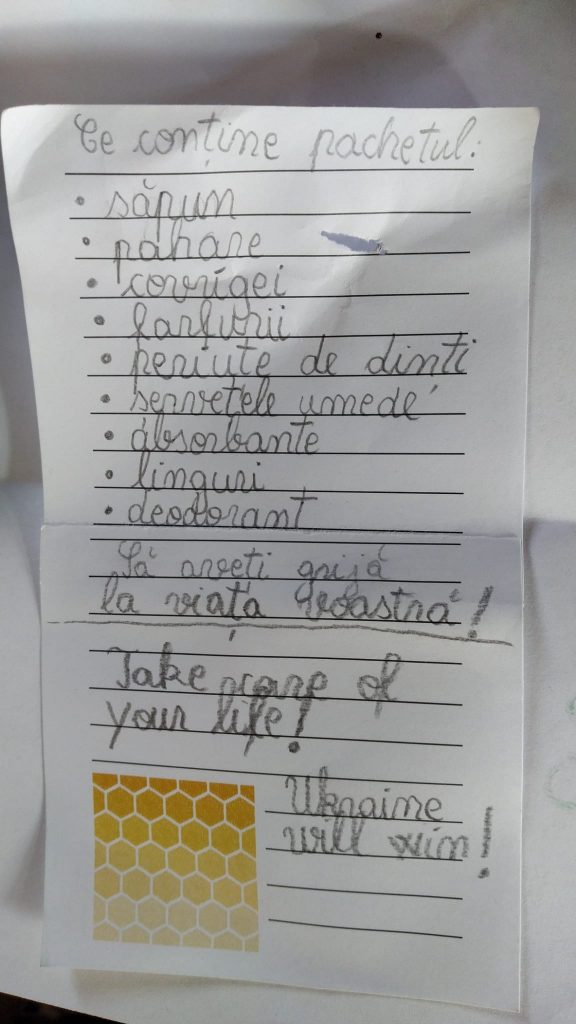 Ce conține pachetul:
• săpun
• pahare
• covrigei
• farfurii
• periuțe de dinți
• servețele umede
• absorbante
• linguri
• deodorant
Să aveți grijă
la viața voastră!
Take care of
your life!
Ukraine
will win!